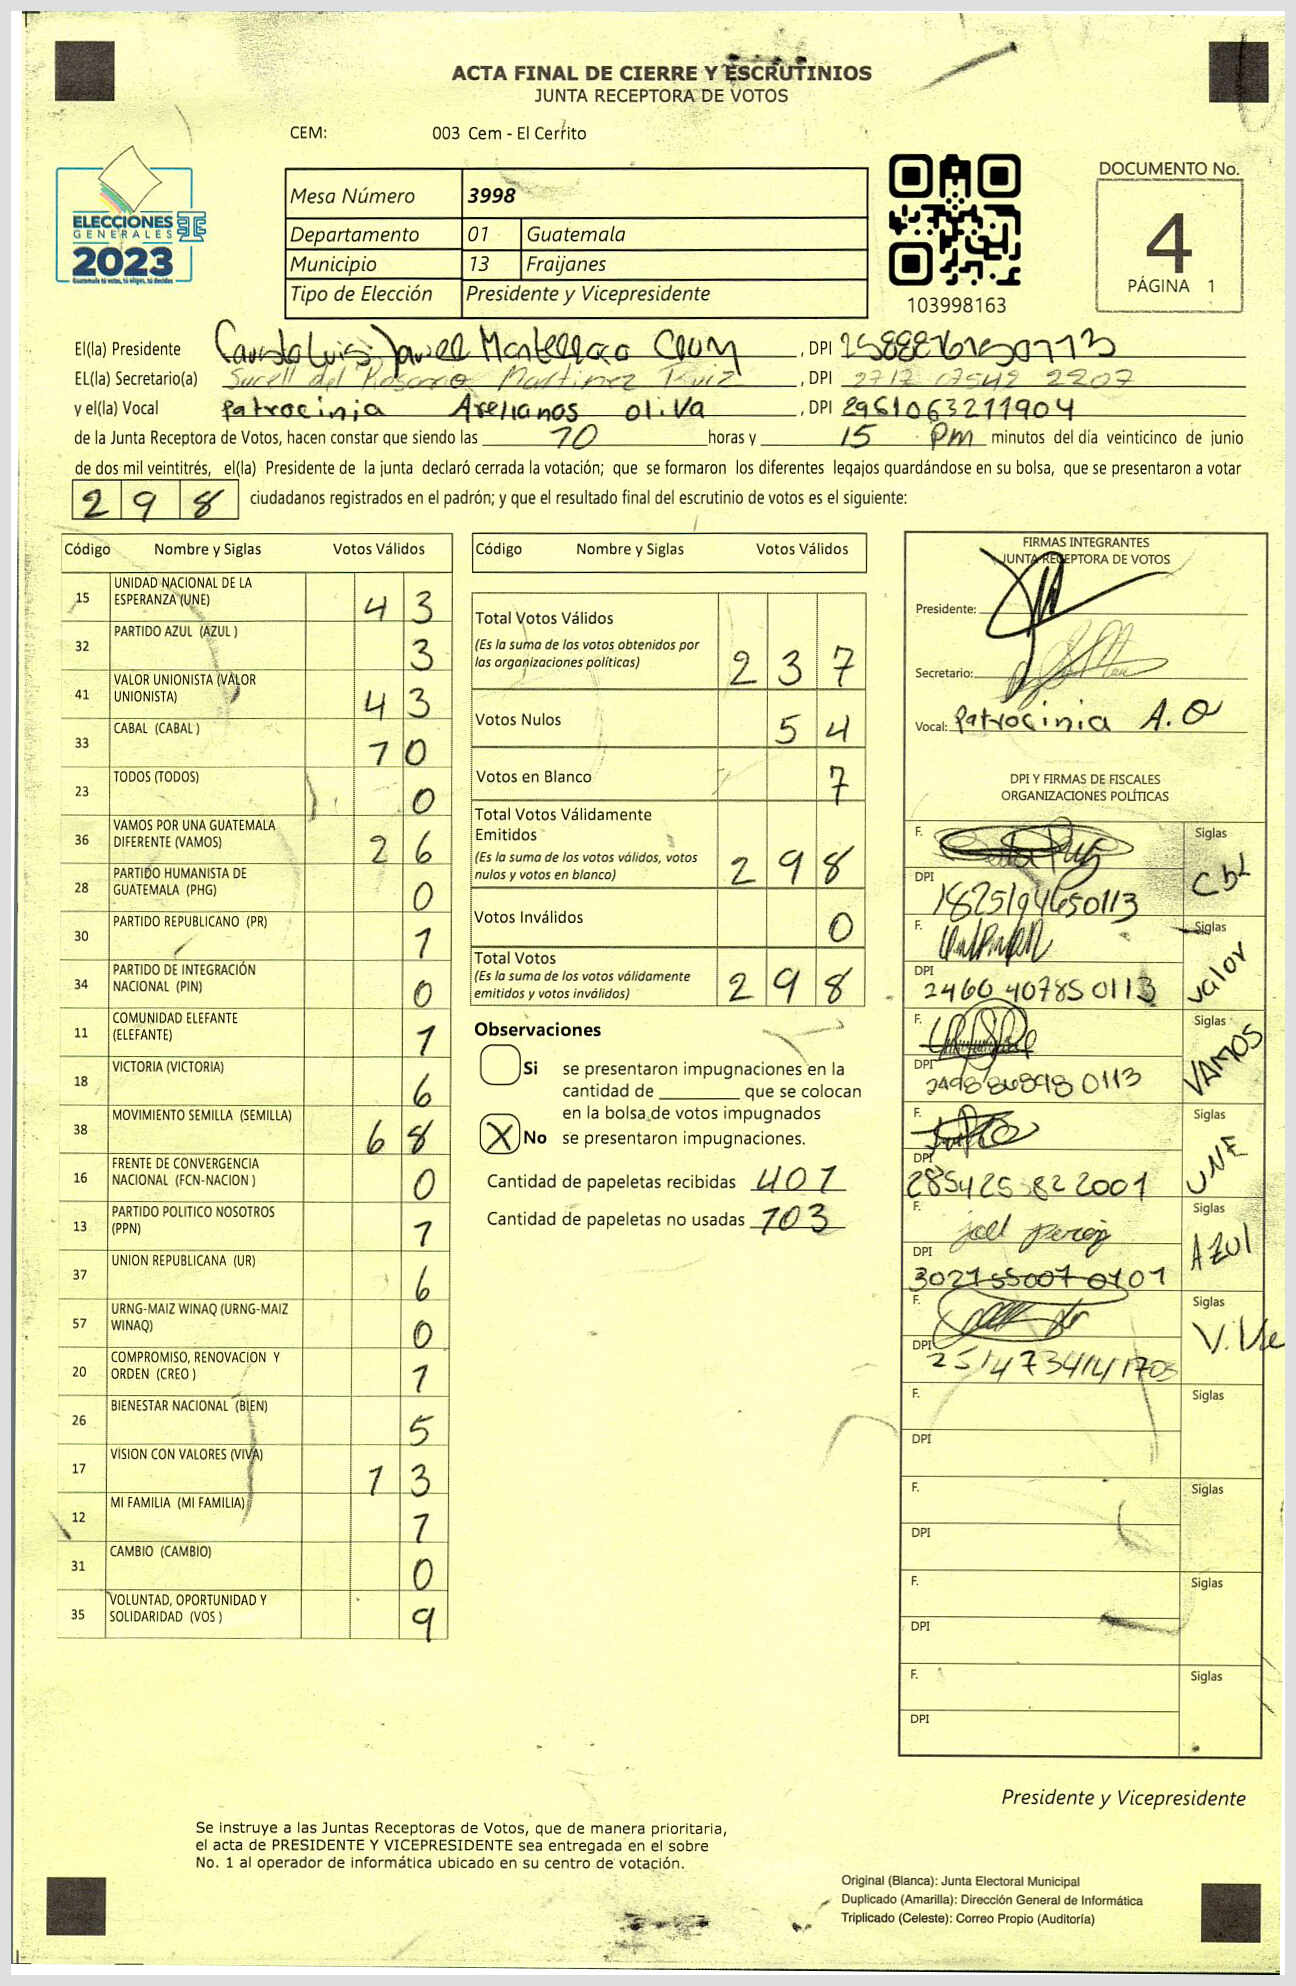 ACTA FINAL DE CIERRE Y ESCRUTINIOS
JUNTA RECEPTORA DE VOTOS
CEM: 003 Cem - El Cerrito
ELECCIONES
GENERALES
2023
Guatemala tú votas, tú eliges, tú decides
Mesa Número 3998
Departamento 01 Guatemala
Municipio 13 Fraijanes
Tipo de Elección Presidente y Vicepresidente
103998163
DOCUMENTO No.
4
PÁGINA 1
El(la) Presidente Luis Javier , DPI
EL(la) Secretario(a) Sucell del Rosario Martinez Ruiz , DPI 2717 07542 2207
y el(la) Vocal Patrocinia Arellanos oliva , DPI 2961063211904
de la Junta Receptora de Votos, hacen constar que siendo las 10 horas y 15 pm minutos del día veinticinco de junio
de dos mil veintitrés, el(la) Presidente de la junta declaró cerrada la votación; que se formaron los diferentes legajos guardándose en su bolsa, que se presentaron a votar
298 ciudadanos registrados en el padrón; y que el resultado final del escrutinio de votos es el siguiente:
Código Nombre y Siglas Votos Válidos
15 UNIDAD NACIONAL DE LA
ESPERANZA (UNE) 43
32 PARTIDO AZUL (AZUL ) 3
41 VALOR UNIONISTA (VALOR
UNIONISTA) 43
33 CABAL (CABAL ) 10
23 TODOS (TODOS) 0
36 VAMOS POR UNA GUATEMALA
DIFERENTE (VAMOS) 26
28 PARTIDO HUMANISTA DE
GUATEMALA (PHG) 0
30 PARTIDO REPUBLICANO (PR) 1
34 PARTIDO DE INTEGRACIÓN
NACIONAL (PIN) 0
11 COMUNIDAD ELEFANTE
(ELEFANTE) 1
18 VICTORIA (VICTORIA) 6
38 MOVIMIENTO SEMILLA (SEMILLA) 68
16 FRENTE DE CONVERGENCIA
NACIONAL (FCN-NACION ) 0
13 PARTIDO POLITICO NOSOTROS
(PPN) 1
37 UNION REPUBLICANA (UR) 6
57 URNG-MAIZ WINAQ (URNG-MAIZ
WINAQ) 0
20 COMPROMISO, RENOVACION Y
ORDEN (CREO ) 1
26 BIENESTAR NACIONAL (BIEN) 5
17 VISION CON VALORES (VIVA) 13
12 MI FAMILIA (MI FAMILIA) 1
31 CAMBIO (CAMBIO) 0
35 VOLUNTAD, OPORTUNIDAD Y
SOLIDARIDAD (VOS ) 9
Código Nombre y Siglas Votos Válidos
Total Votos Válidos
(Es la suma de los votos obtenidos por
las organizaciones políticas) 237
Votos Nulos 54
Votos en Blanco 7
Total Votos Válidamente
Emitidos
(Es la suma de los votos válidos, votos
nulos y votos en blanco) 298
Votos Inválidos 0
Total Votos
(Es la suma de los votos válidamente
emitidos y votos inválidos) 298
Observaciones
Si se presentaron impugnaciones en la
cantidad de ________ que se colocan
en la bolsa de votos impugnados
X No se presentaron impugnaciones.
Cantidad de papeletas recibidas 401
Cantidad de papeletas no usadas 103
FIRMAS INTEGRANTES
JUNTA RECEPTORA DE VOTOS
Presidente:
Secretario:
Vocal: Patrocinia A. O
DPI Y FIRMAS DE FISCALES
ORGANIZACIONES POLÍTICAS
F. Siglas
DPI 1825194650113 CbL
F. Siglas
DPI 2460 40785 0113 valor
F. Siglas
DPI 2498 86898 0113 VAMOS
F. Siglas
DPI 285425822001 UNE
F. joel perez Siglas
DPI 3021550070101 AZUL
F. Siglas
DPI 2514734141703
F. Siglas
DPI
F. Siglas
DPI
F. Siglas
DPI
F. Siglas
DPI
Presidente y Vicepresidente
Se instruye a las Juntas Receptoras de Votos, que de manera prioritaria,
el acta de PRESIDENTE Y VICEPRESIDENTE sea entregada en el sobre
No. 1 al operador de informática ubicado en su centro de votación.
Original (Blanca): Junta Electoral Municipal
Duplicado (Amarilla): Dirección General de Informática
Triplicado (Celeste): Correo Propio (Auditoría)